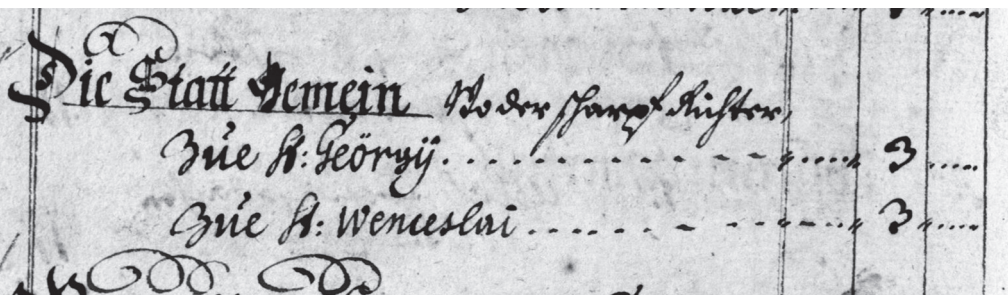 Die Statt Gemein Wo der scharpf Richter,
Zue St: Geörgÿ. 3
Zue St: Wenceslai 3